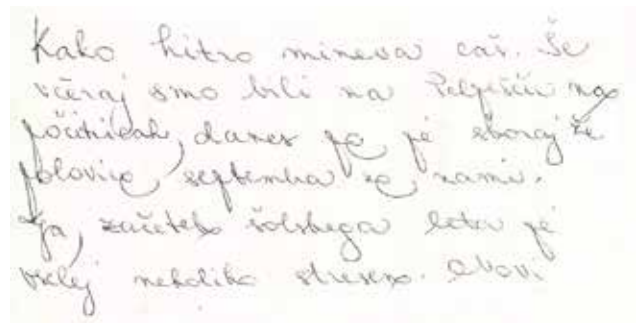 Kako hitro mineva čas. Še
včeraj smo bili na Pelješcu na
počitnicah, danes pa je skoraj že
polovica septembra za nami.
Ja, začetek šolskega leta je
vselej nekoliko stresen. Novi